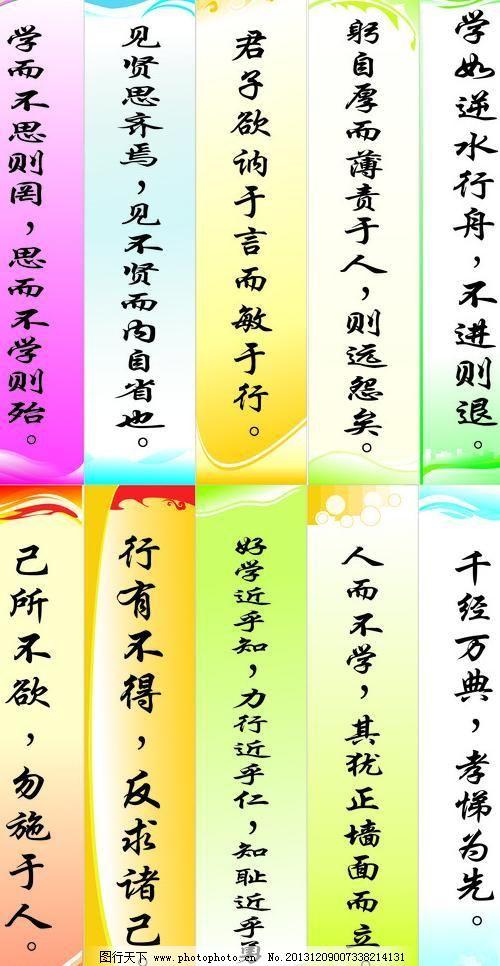 学而不思则罔，思而不学则殆。
见贤思齐焉，见不贤而内自省也。
君子欲讷于言而敏于行。
躬自厚而薄责于人，则远怨矣。
学如逆水行舟，不进则退。
己所不欲，勿施于人。
行有不得，反求诸己
好学近乎知，力行近乎仁，知耻近乎勇
人而不学，其犹正墙面而立
千经万典，孝悌为先。
图行天下 PHOTOPHOTO.CN No.20131209007338214131